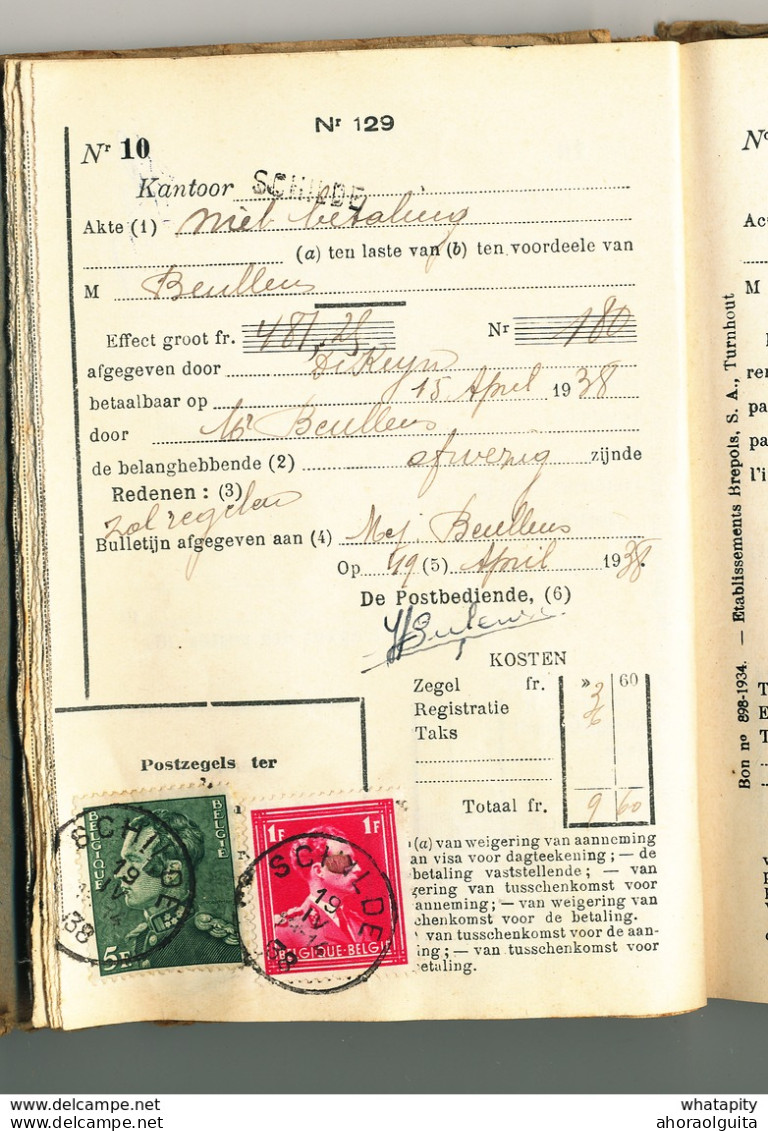 Nr 129
Nr 10
Kantoor SCHILDE
Akte (1) niet betaling
(a) ten laste van (b) ten voordeele van
M Beullens
Effect groot fr. 481,25 Nr 180
afgegeven door De Keyn
betaalbaar op 15 April 1938
door Mr Beullens
de belanghebbende (2) afwezig zijnde
Redenen : (3)
zal regelen
Bulletijn afgegeven aan (4) Mej. Beullens
Op 19 (5) April 1938.
De Postbediende, (6)
KOSTEN
Zegel fr. 3 60
Registratie 6
Taks
Totaal fr. 9 60
Postzegels ter
(a) van weigering van aanneming
an visa voor dagteekening ; — de
betaling vaststellende ; — van
gering van tusschenkomst voor
anneming; — van weigering van
chenkomst voor de betaling.
van tusschenkomst voor de aan-
ing; — van tusschenkomst voor
etaling.
BELGIQUE BELGIE
5F
SCHILDE
19
IV
38
1F 1F
BELGIQUE-BELGIE
SCHILDE
19
IV
38
Bon no 898-1934. — Etablissements Brepols, S. A., Turnhout
No
Ac
M
ren
pa
pa
l'i
T
E
T
whatapity
ahoraolguita
whatapity
ahoraolguita